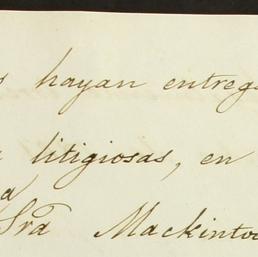 hayan entreg
litigiosas, en
a
Sra Mackinto